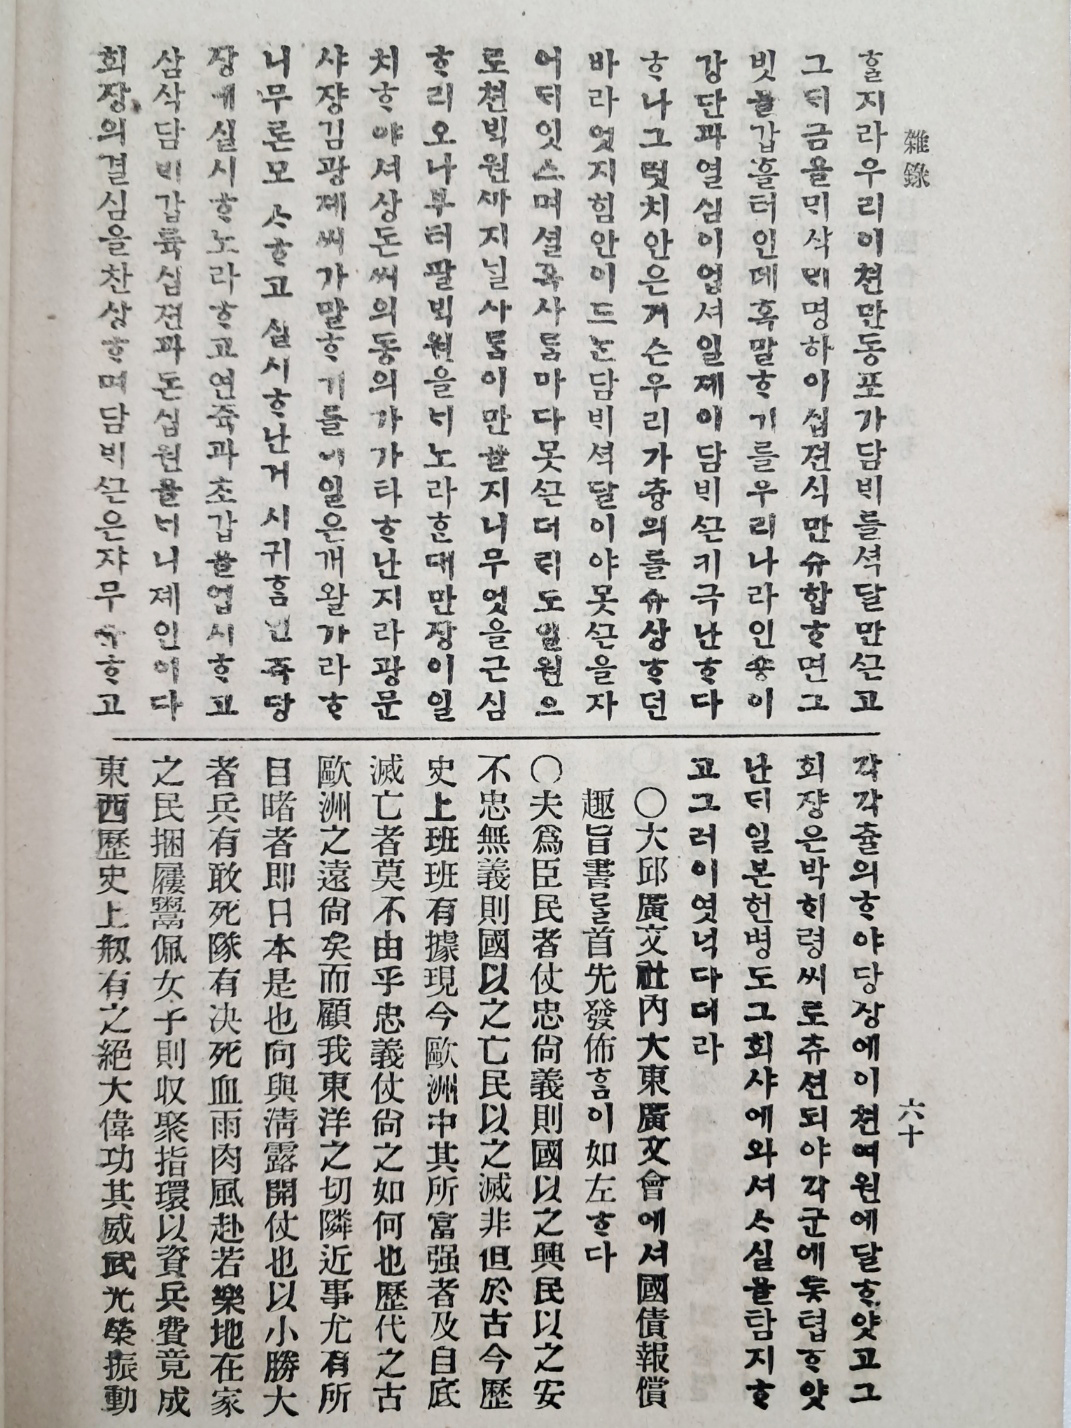 雜錄
ᄒᆞᆯ지라우리이쳔만동포가담ᄇᆡ를셕달만ᄭᅳᆫ고
그ᄃᆡ금을ᄆᆡ삭ᄆᆡ명하이십젼식만슈합ᄒᆞ면그
빗을갑흘터인데혹말ᄒᆞ기를우리나라인즁이
강단과열심이업셔일졔이담ᄇᆡᄭᅳᆫ키극난ᄒᆞ다
ᄒᆞ나그럿치안은거슨우리가츙의를슈상ᄒᆞ던
바라엇지힘안이드ᄂᆞᆫ담ᄇᆡ셕달이야못ᄭᅳᆫ을자
어ᄃᆡ잇스며셜혹사ᄅᆞᆷ마다못ᄭᅳᆫ더ᄅᆡ도일원으
로쳔ᄇᆡᆨ원ᄭᅡ지ᄂᆡᆯ사ᄅᆞᆷ이만흘지니무엇을근심
ᄒᆞ리오나부터팔ᄇᆡᆨ원을ᄂᆡ노라ᄒᆞᆫ대만장이일
치ᄒᆞ야셔상돈씨의동의가가타ᄒᆞ난지라광문
샤쟝김광졔씨가말ᄒᆞ기를이일은개왈가라ᄒᆞ
니무론모ᄉᆞᄒᆞ고실시ᄒᆞ난거시귀ᄒᆞᆷ인즉당
장에실시ᄒᆞ노라ᄒᆞ고연쥭과초갑을업시ᄒᆞ고
삼삭담ᄇᆡ갑륙십젼과돈십원을ᄂᆡ니졔인이다
회장의결심을찬상ᄒᆞ며담ᄇᆡᄭᅳᆫ은쟈무수ᄒᆞ고
각각츌의ᄒᆞ야당상에이쳔여원에달ᄒᆞ얏고그
회쟝은박ᄒᆡ령씨로츄션되야각군에통텹ᄒᆞ얏
난ᄃᆡ일본헌병도그회샤에와셔ᄉᆞ실을탐지ᄒᆞ
고그러이엿넉다더라
〇大邱廣文社內大東廣文會에셔國債報償
趣旨書를首先發佈홈이如左ᄒᆞ다
〇夫爲臣民者仗忠尙義則國以之興民以之安
不忠無義則國以之亡民以之滅非但於古今歷
史上班班有據現今歐洲中其所富强者及自底
滅亡者莫不由乎忠義仗尙之如何也歷代之古
歐洲之遠尙矣而顧我東洋之切隣近事尤有所
目睹者即日本是也向與淸露開仗也以小勝大
者兵有敢死隊有決死血雨肉風赴若樂地在家
之民捆屨鬻佩女子則收聚指環以資兵費竟成
東西歷史上刱有之絕大偉功其威武光榮振動
六十